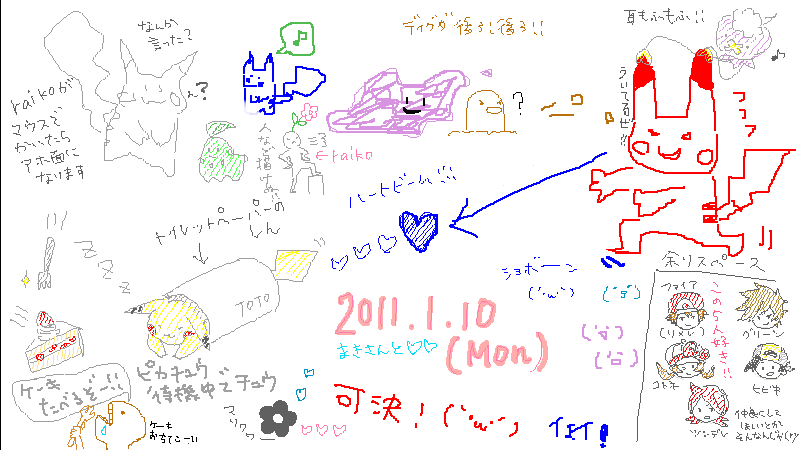 なんか
言った?
ん?
raikoが
マウスで
かいたら
アホ面に
なります
♪
ディグダ 後ろ!後ろ!!
?
耳もふもふ!!
♪
ういてるぜ!!
←raiko
ハートビーム!!
トイレットペーパーの
しん
zzz
TOTO
ショボーン
(´・ω・`)
余りスペース
2011.1.10
(Mon)
まきさんと♡♡
ピカチュウ
待機中でチュウ
ケーキ
たべるぞー!!
ケーキ
おちてこーい
可決!(´・ω・`)
イエイ!
ファイア
この5人好き!!
グリーン
コトネ
ヒビキ
ツンデレ
仲良くして
ほしいとか